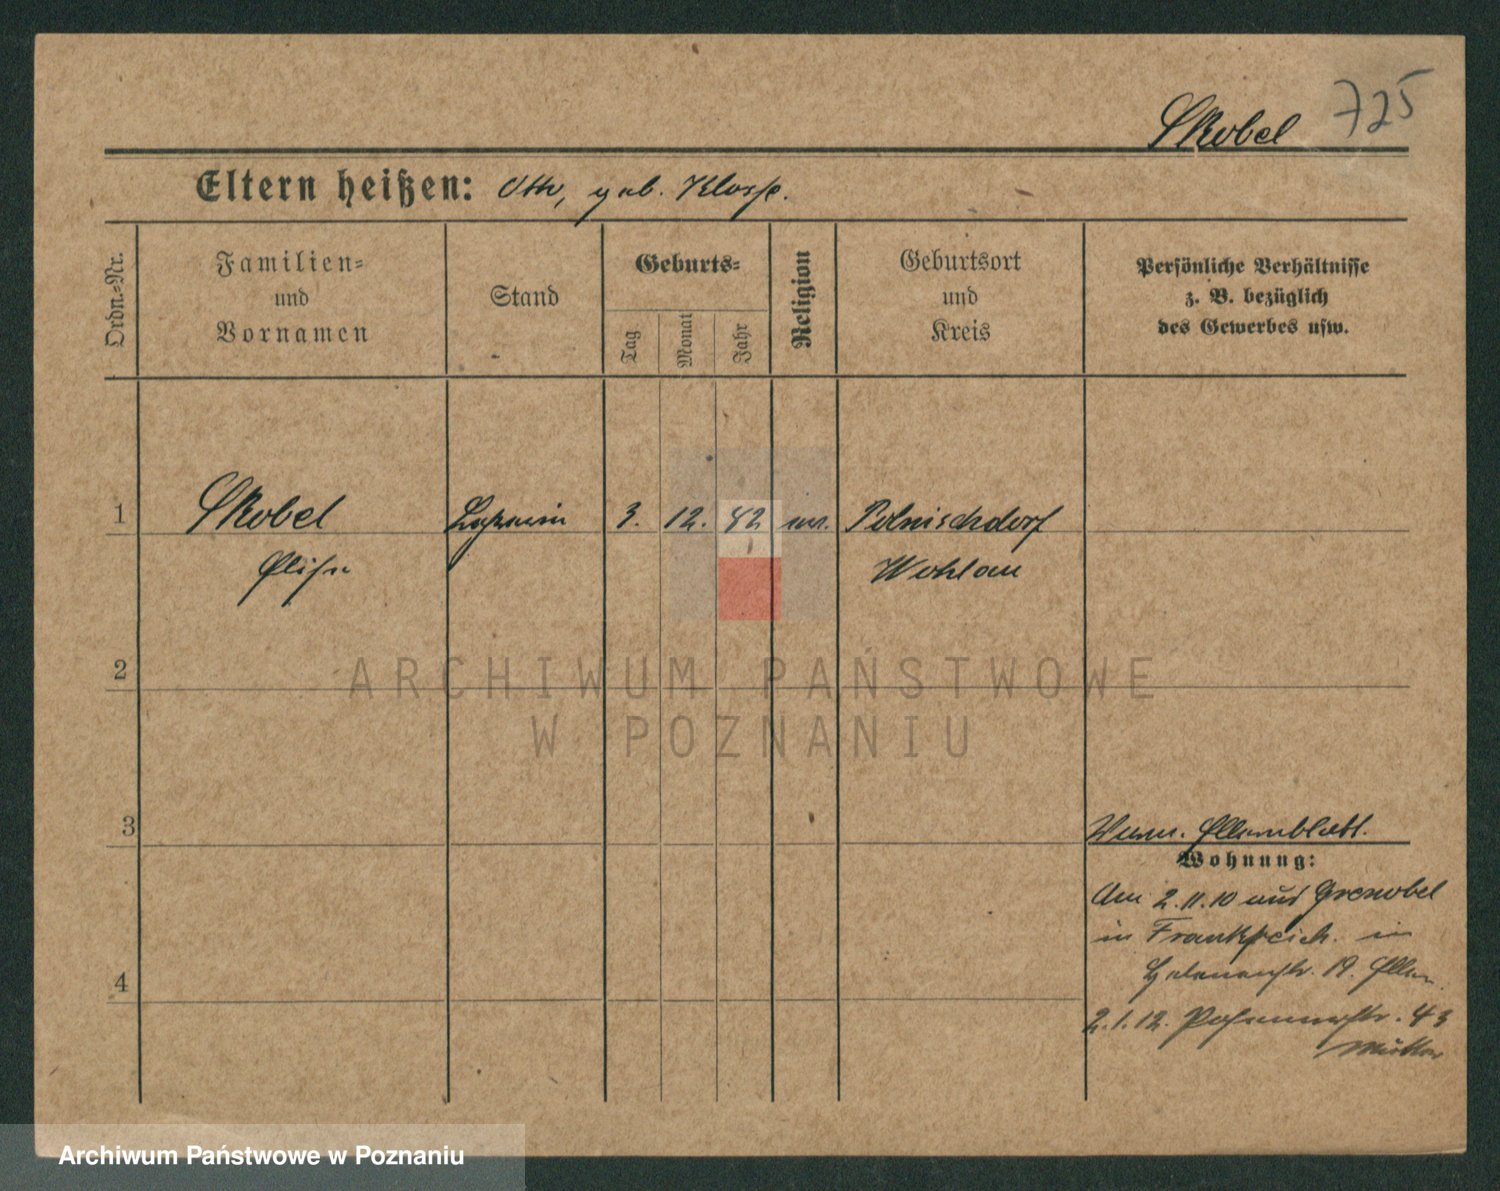 Skobel 725
Eltern heißen: Otto, geb. Klose.
Ordn.=Nr.
Familien=
und
Vornamen
Stand
Geburts=
Tag
Monat
Jahr
Religion
Geburtsort
und
Kreis
Persönliche Verhältnisse
z. B. bezüglich
des Gewerbes usw.
1 Skobel 3. 12. 82 ev. Polnischdorf
Elise Wohlau
2
ARCHIWUM PAŃSTWOWE
W POZNANIU
3
Elternblatt.
Wohnung:
Am 2.11.10 aus Grenobel
in Frankreich. in
19. Eltern.
4
2.1.12. Posenerstr. 43
Mutter
Archiwum Państwowe w Poznaniu